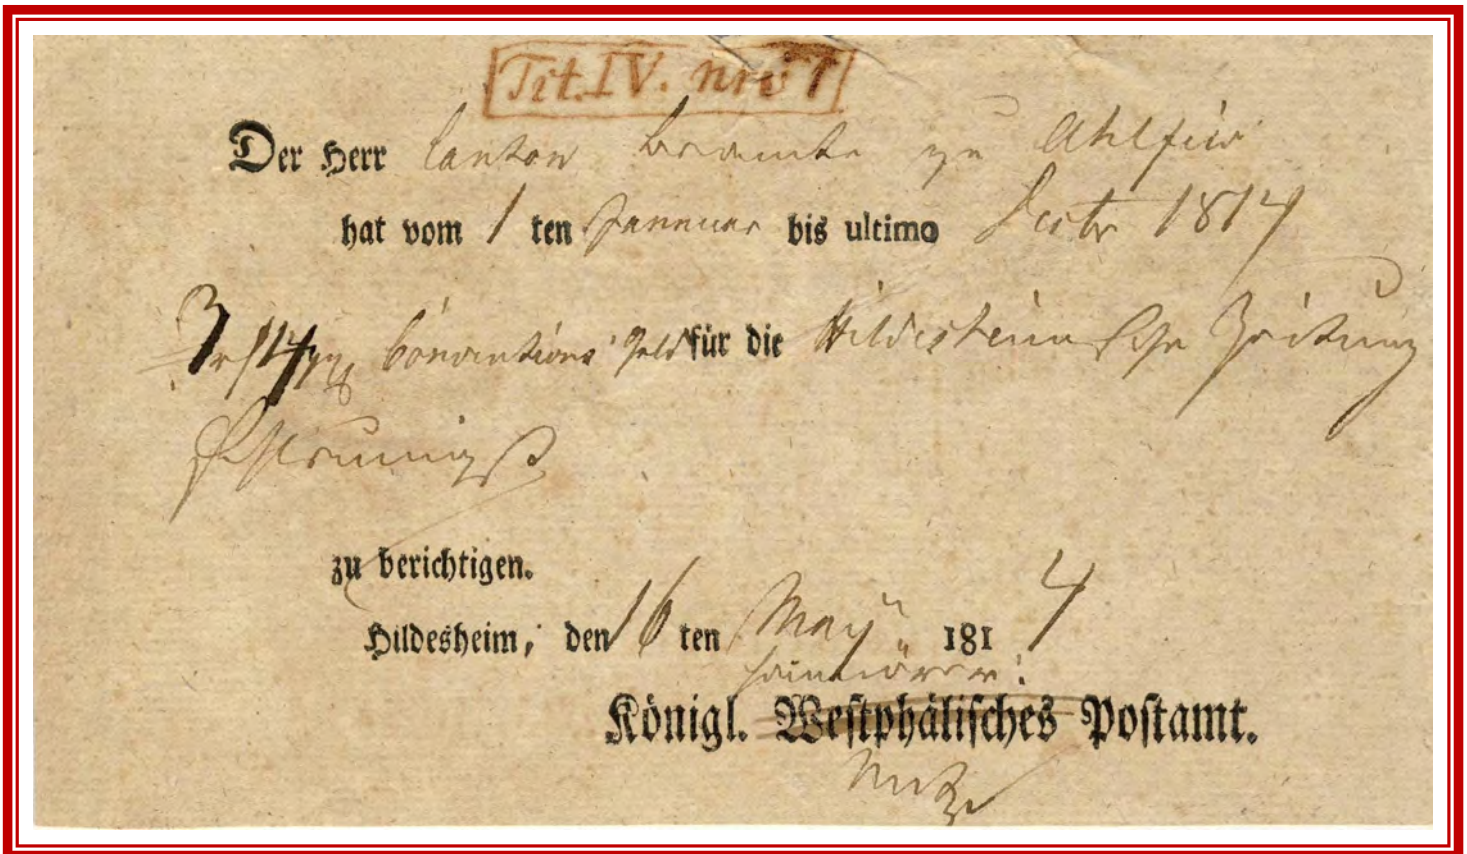 Tit. IV. nro 1
Der Herr Canton Beamte zu Ahlfeld
hat vom 1 ten Januar bis ultimo 1814
3 14 Conventions Geld für die Hildesheimsche Zeitung
zu berichtigen.
Hildesheim, den 16 ten May 1814
hannövr:
Königl. Westphälisches Postamt.